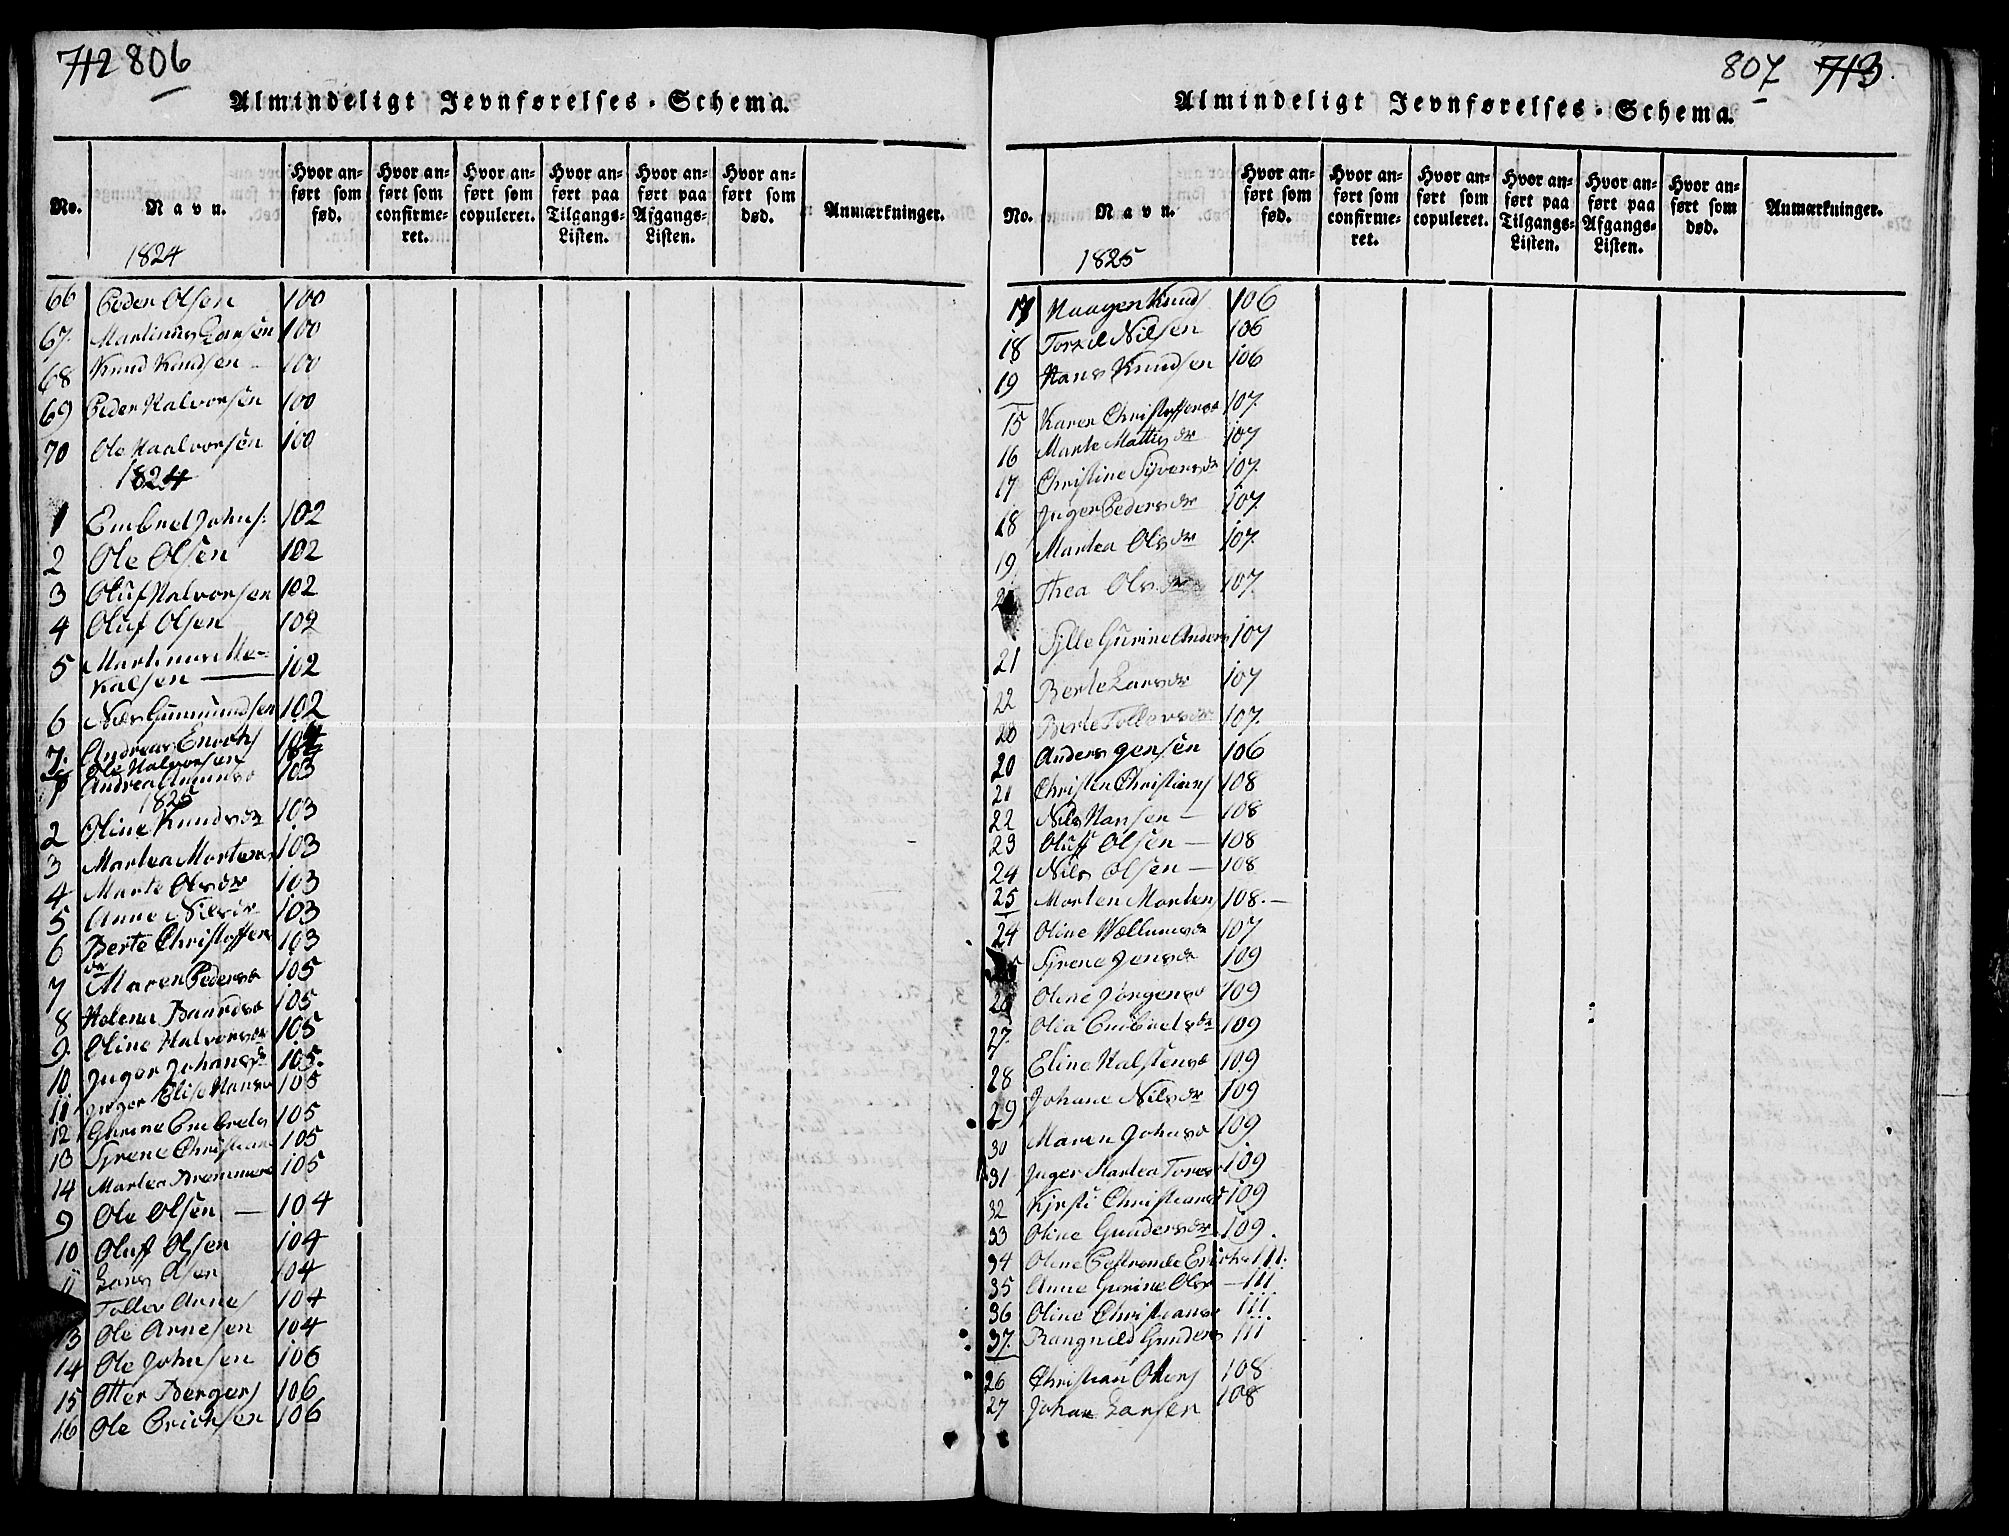 712 806
Almindeligt Jevnførelses-Schema.
No.
Navn.
Hvor anført som fød.
Hvor anført som confirmeret.
Hvor anført som copuleret.
Hvor anført paa Tilgangs-Listen.
Hvor anført paa Afgangs-Listen.
Hvor anført som død.
Anmærkninger.
1824
66 Peder Olsen 100
67. Martinus Larsen 100
68 Knud Knudsen 100
69 Peder Halvorsen 100
70 Ole Haalvorsen 100
1824
1 Embret Johns: 102
2 Ole Olsen 102
3 Oluf Halvorsen 102
4 Oluf Olsen 102
5 Martinus Me-
kalsen 102
6 Nils Gunnundsen 102
7. Andreas Enochs
Ole Halvorsen
1 Andrea Amunds 103
1825
2 Oline Knudsdr 103
3 Martea Mortens 103
4 Marte Olsdr 103
5 Anne Nilsdr 103
6 Berte Christoffers 103
dr
7 Maren Pedersd 105
8 Helene Baardsd 105
9. Oline Halvorsdr 105
10 Inger Johansdr 105.
11 Inger Elise Hansd 105
12 Gurine Embrets 105
13 Syrene Christians 105
14 Martea Brommers 105
9 Ole Olsen 104
10 Oluff Olsen 104
11 Lars Olsen 104
Toller Arnes 104
13 Ole Arnesen 104
14 Ole Johnsen 106
15 Otter Bergers 106
16 Ole Erichsen 106
807 713.
Almindeligt Jevnførelses-Schema.
No.
Navn.
Hvor anført som fød.
Hvor anført som confirmeret.
Hvor anført som copuleret.
Hvor anført paa Tilgangs-Listen.
Hvor anført paa Afgangs-Listen.
Hvor anført som død.
Anmærkninger.
1825
17 Haagen Knuds 106
18 Torkel Nilsen 106
19 Hans Knudsen 106
15 Karen Christoffersd 107.
16 Marte Mattisdr 107
17 Christine Syversdr 107.
18 Inger Pedersdr 107.
19. Martea Olsdr 107.
Thea Olsdr 107.
21 Sylle Gurine Anders 107
22 Berte Larsdr 107
23 Berte Tollersdr 107.
20 Anders Jensen 106
21 Christen Christians 108
22 Nils Hansen 108
23 Oluff Olsen 108
24 Nils Olsen 108
25 Morten Mortens 108.
24 Oline Wællumsdr 107
Syrene Jensdr 109
26 Oline Jörgensd 109
27. Olia Embretsdr 109
28 Eline Halstensd 109
29 Johane Nilsdr 109
30 Maren Johnsd 109
31 Inger Martea Tores 109
32 Kjrsti Christiansd 109
33 Oline Gundersdr 109.
34 Oline Erichs 111.
35 Anne Gurine Ols 111
36 Oline Christiansd 111.
37. Rangnild Gunders 111
26 Christian Otters 108
27 Johan Larsen 108